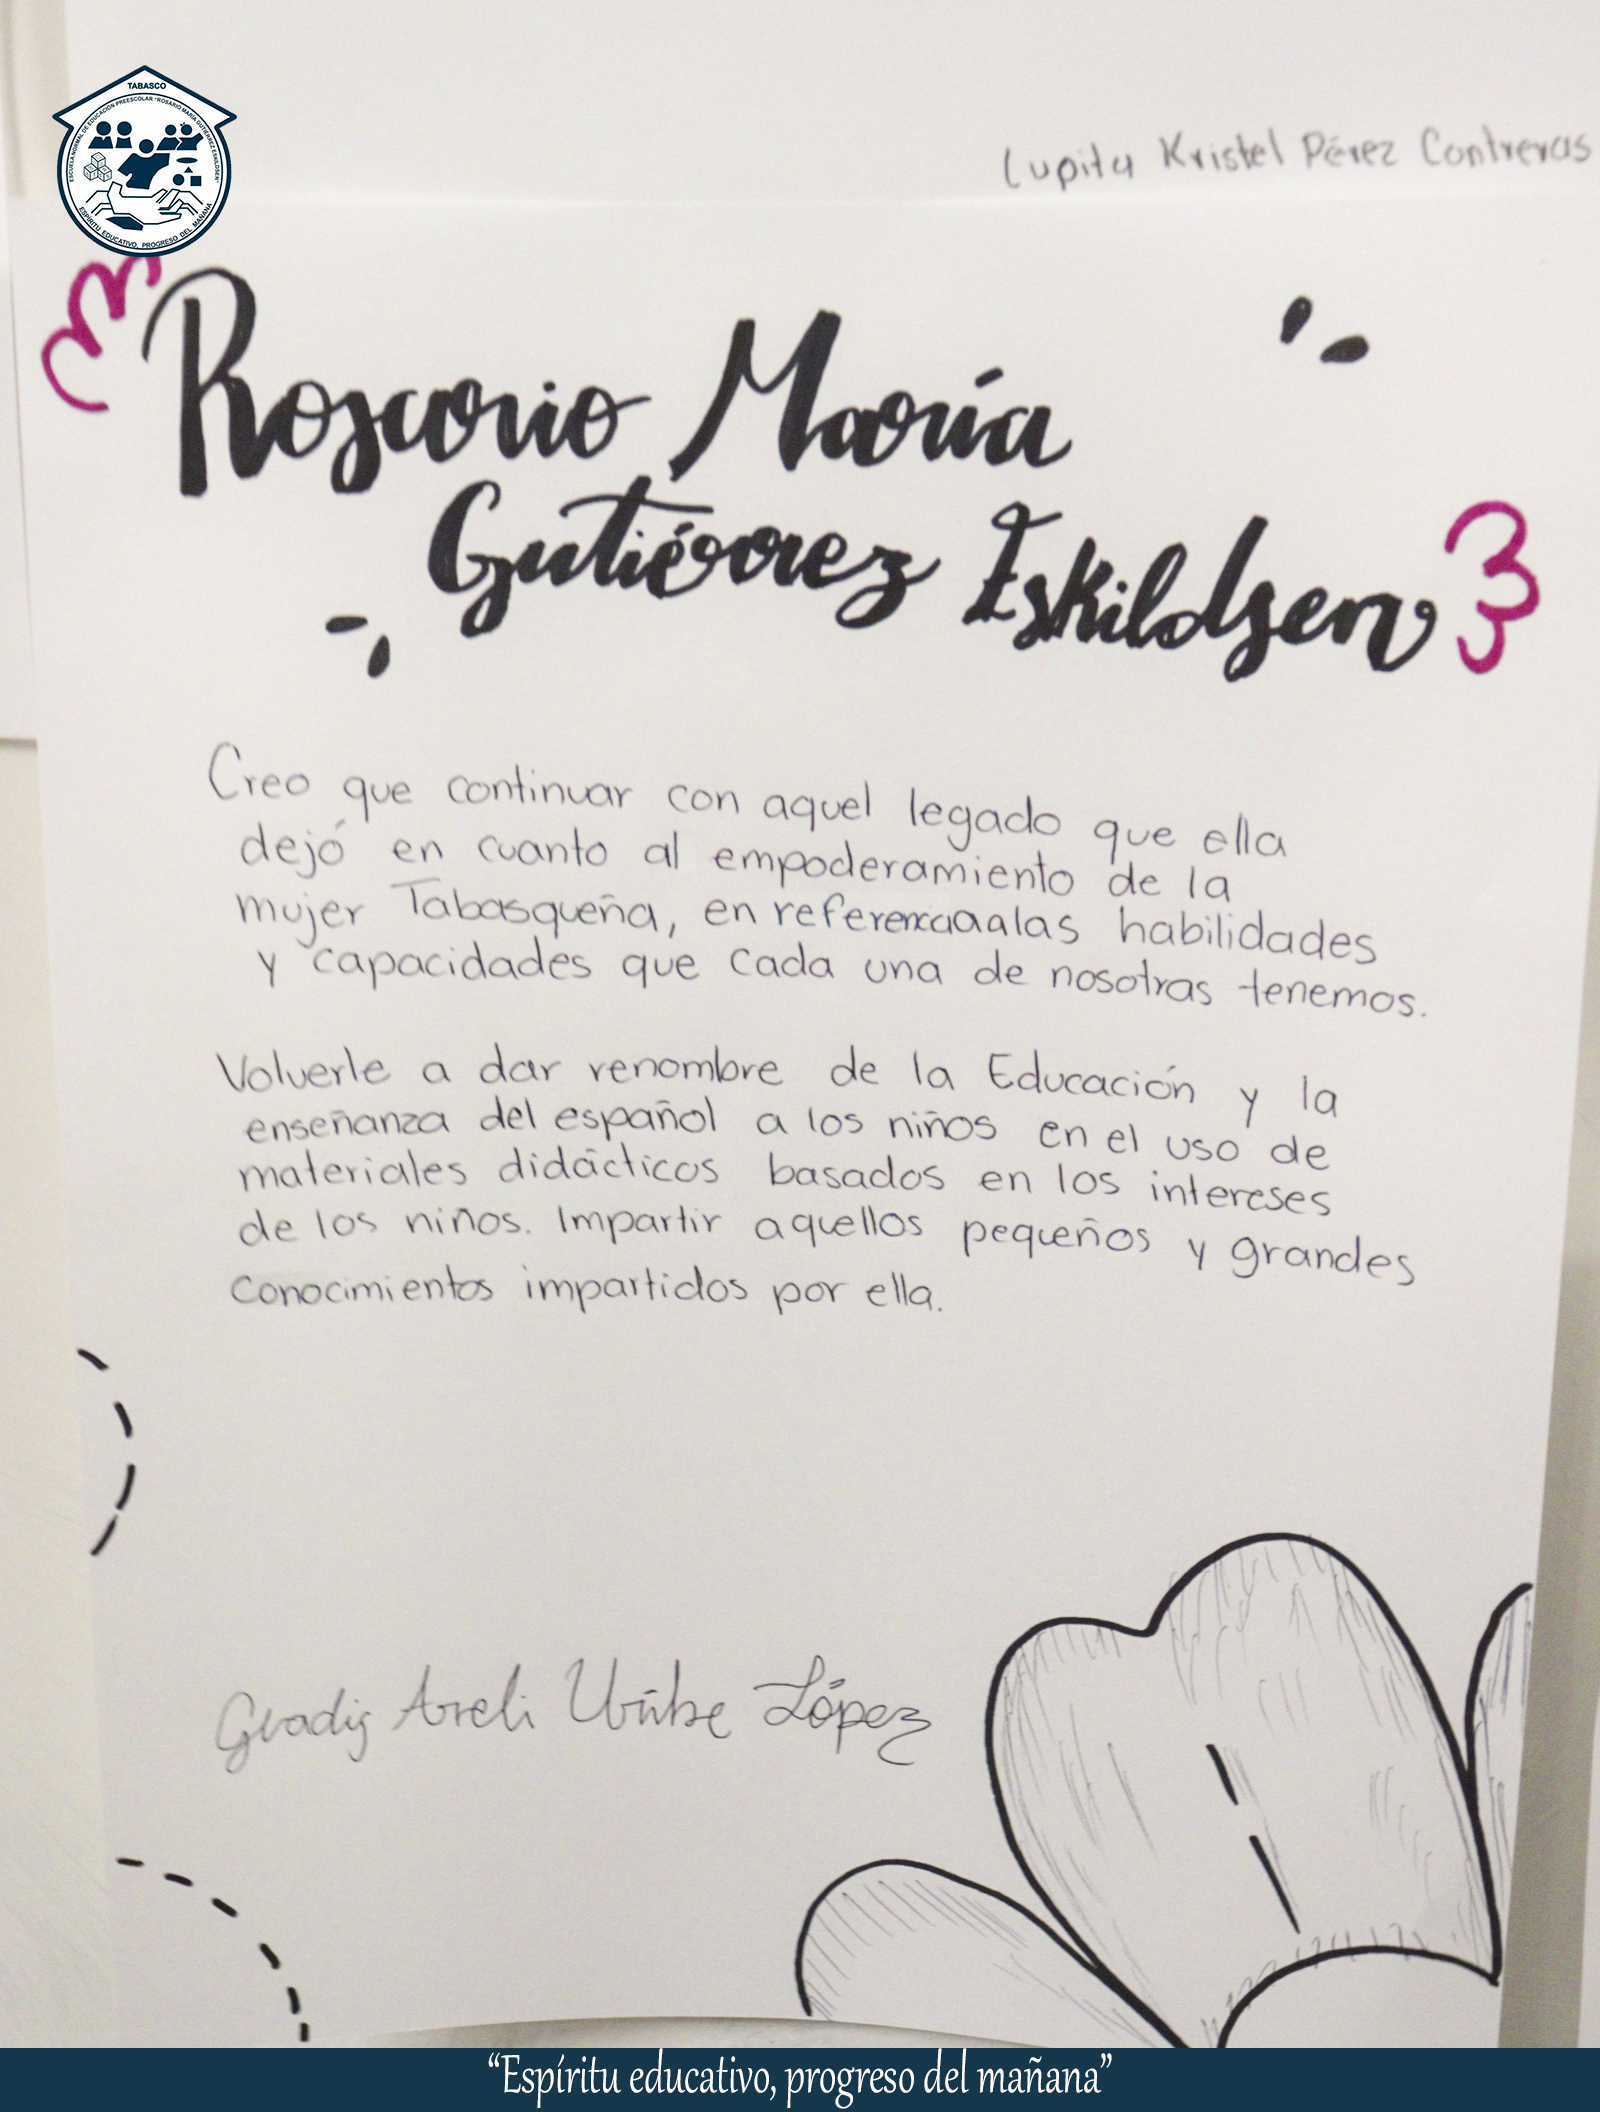 TABASCO
ESCUELA NORMAL DE EDUCACIÓN PREESCOLAR "ROSARIO MARÍA GUTIÉRREZ ESKILDSEN"
ESPÍRITU EDUCATIVO, PROGRESO DEL MAÑANA
Lupita Kristel Pérez Contreras
Rosario María
Gutiérrez Eskildsen
Creo que continuar con aquel legado que ella
dejó en cuanto al empoderamiento de la
mujer Tabasqueña, en referencia a las habilidades
y capacidades que cada una de nosotras tenemos.
Volverle a dar renombre de la Educación y la
enseñanza del español a los niños en el uso de
materiales didácticos basados en los intereses
de los niños. Impartir aquellos pequeños y grandes
conocimientos impartidos por ella.
Gladis Areli Uribe López
"Espíritu educativo, progreso del mañana"